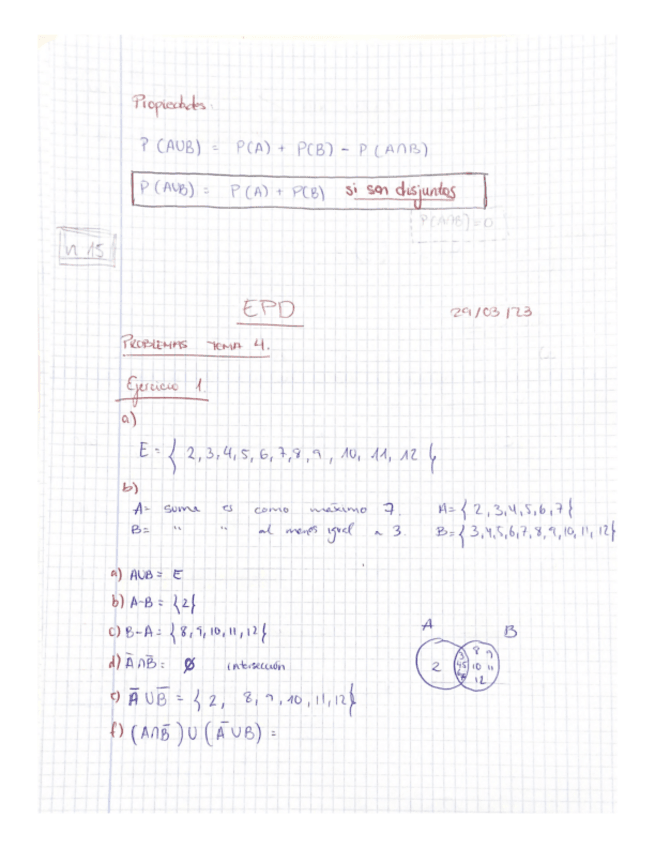 Propiedades:
P (AUB) = P(A) + P(B) - P (A∩B)
P (AUB) = P(A) + P(B) si son disjuntos
P(A∩B)=0
n 15
EPD
29/03/23
PROBLEMAS TEMA 4.
Ejercicio 1.
a)
E = { 2,3,4,5,6,7,8,9, 10, 11, 12 }
b)
A= suma es como máximo 7. A= { 2,3,4,5,6,7 }
B= " " al menos igual a 3. B= { 3,4,5,6,7,8,9,10,11,12 }
a) AUB = E
b) A-B = {2}
c) B-A = {8,9,10,11,12}
d) A̅∩B̅ = Ø intersección
e) A̅ U B̅ = { 2, 8, 9, 10, 11, 12 }
f) (A∩B̅) U (A̅UB) =
A B
2 3 8 9
45 10 11
12